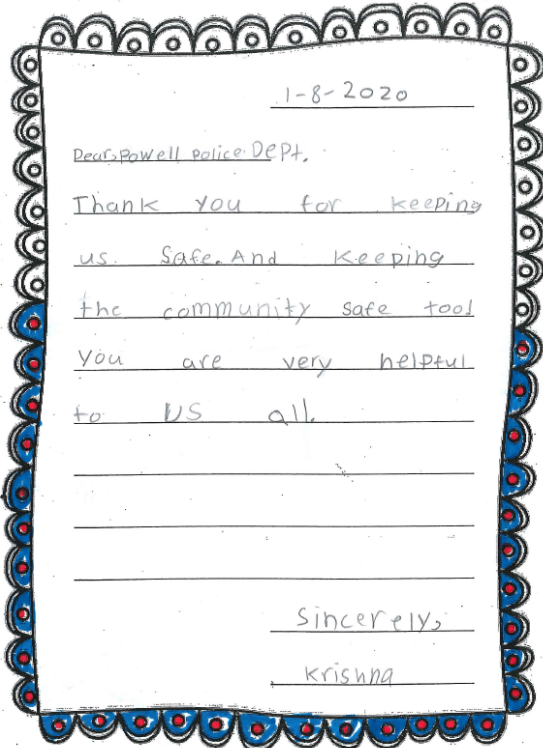 1-8-2020
Dear, Powell Police Dept.
Thank you for keeping
us. Safe. And Keeping
the community safe too!
You are very helpful
to US all.
Sincerely,
Krishna